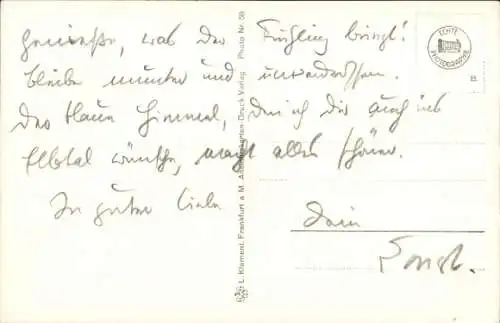 Geniesse, was der Frühling bringt!
bleibe munter und unverdrossen.
Der blaue Himmel, den ich dir auch ins
Elbtal wünsche, macht alles schöner.
In guter Liebe
Dein
Ernst.
ECHTE
PHOTOGRAPHIE
L. Klement, Frankfurt a M. Verlag Photo Nr. 58